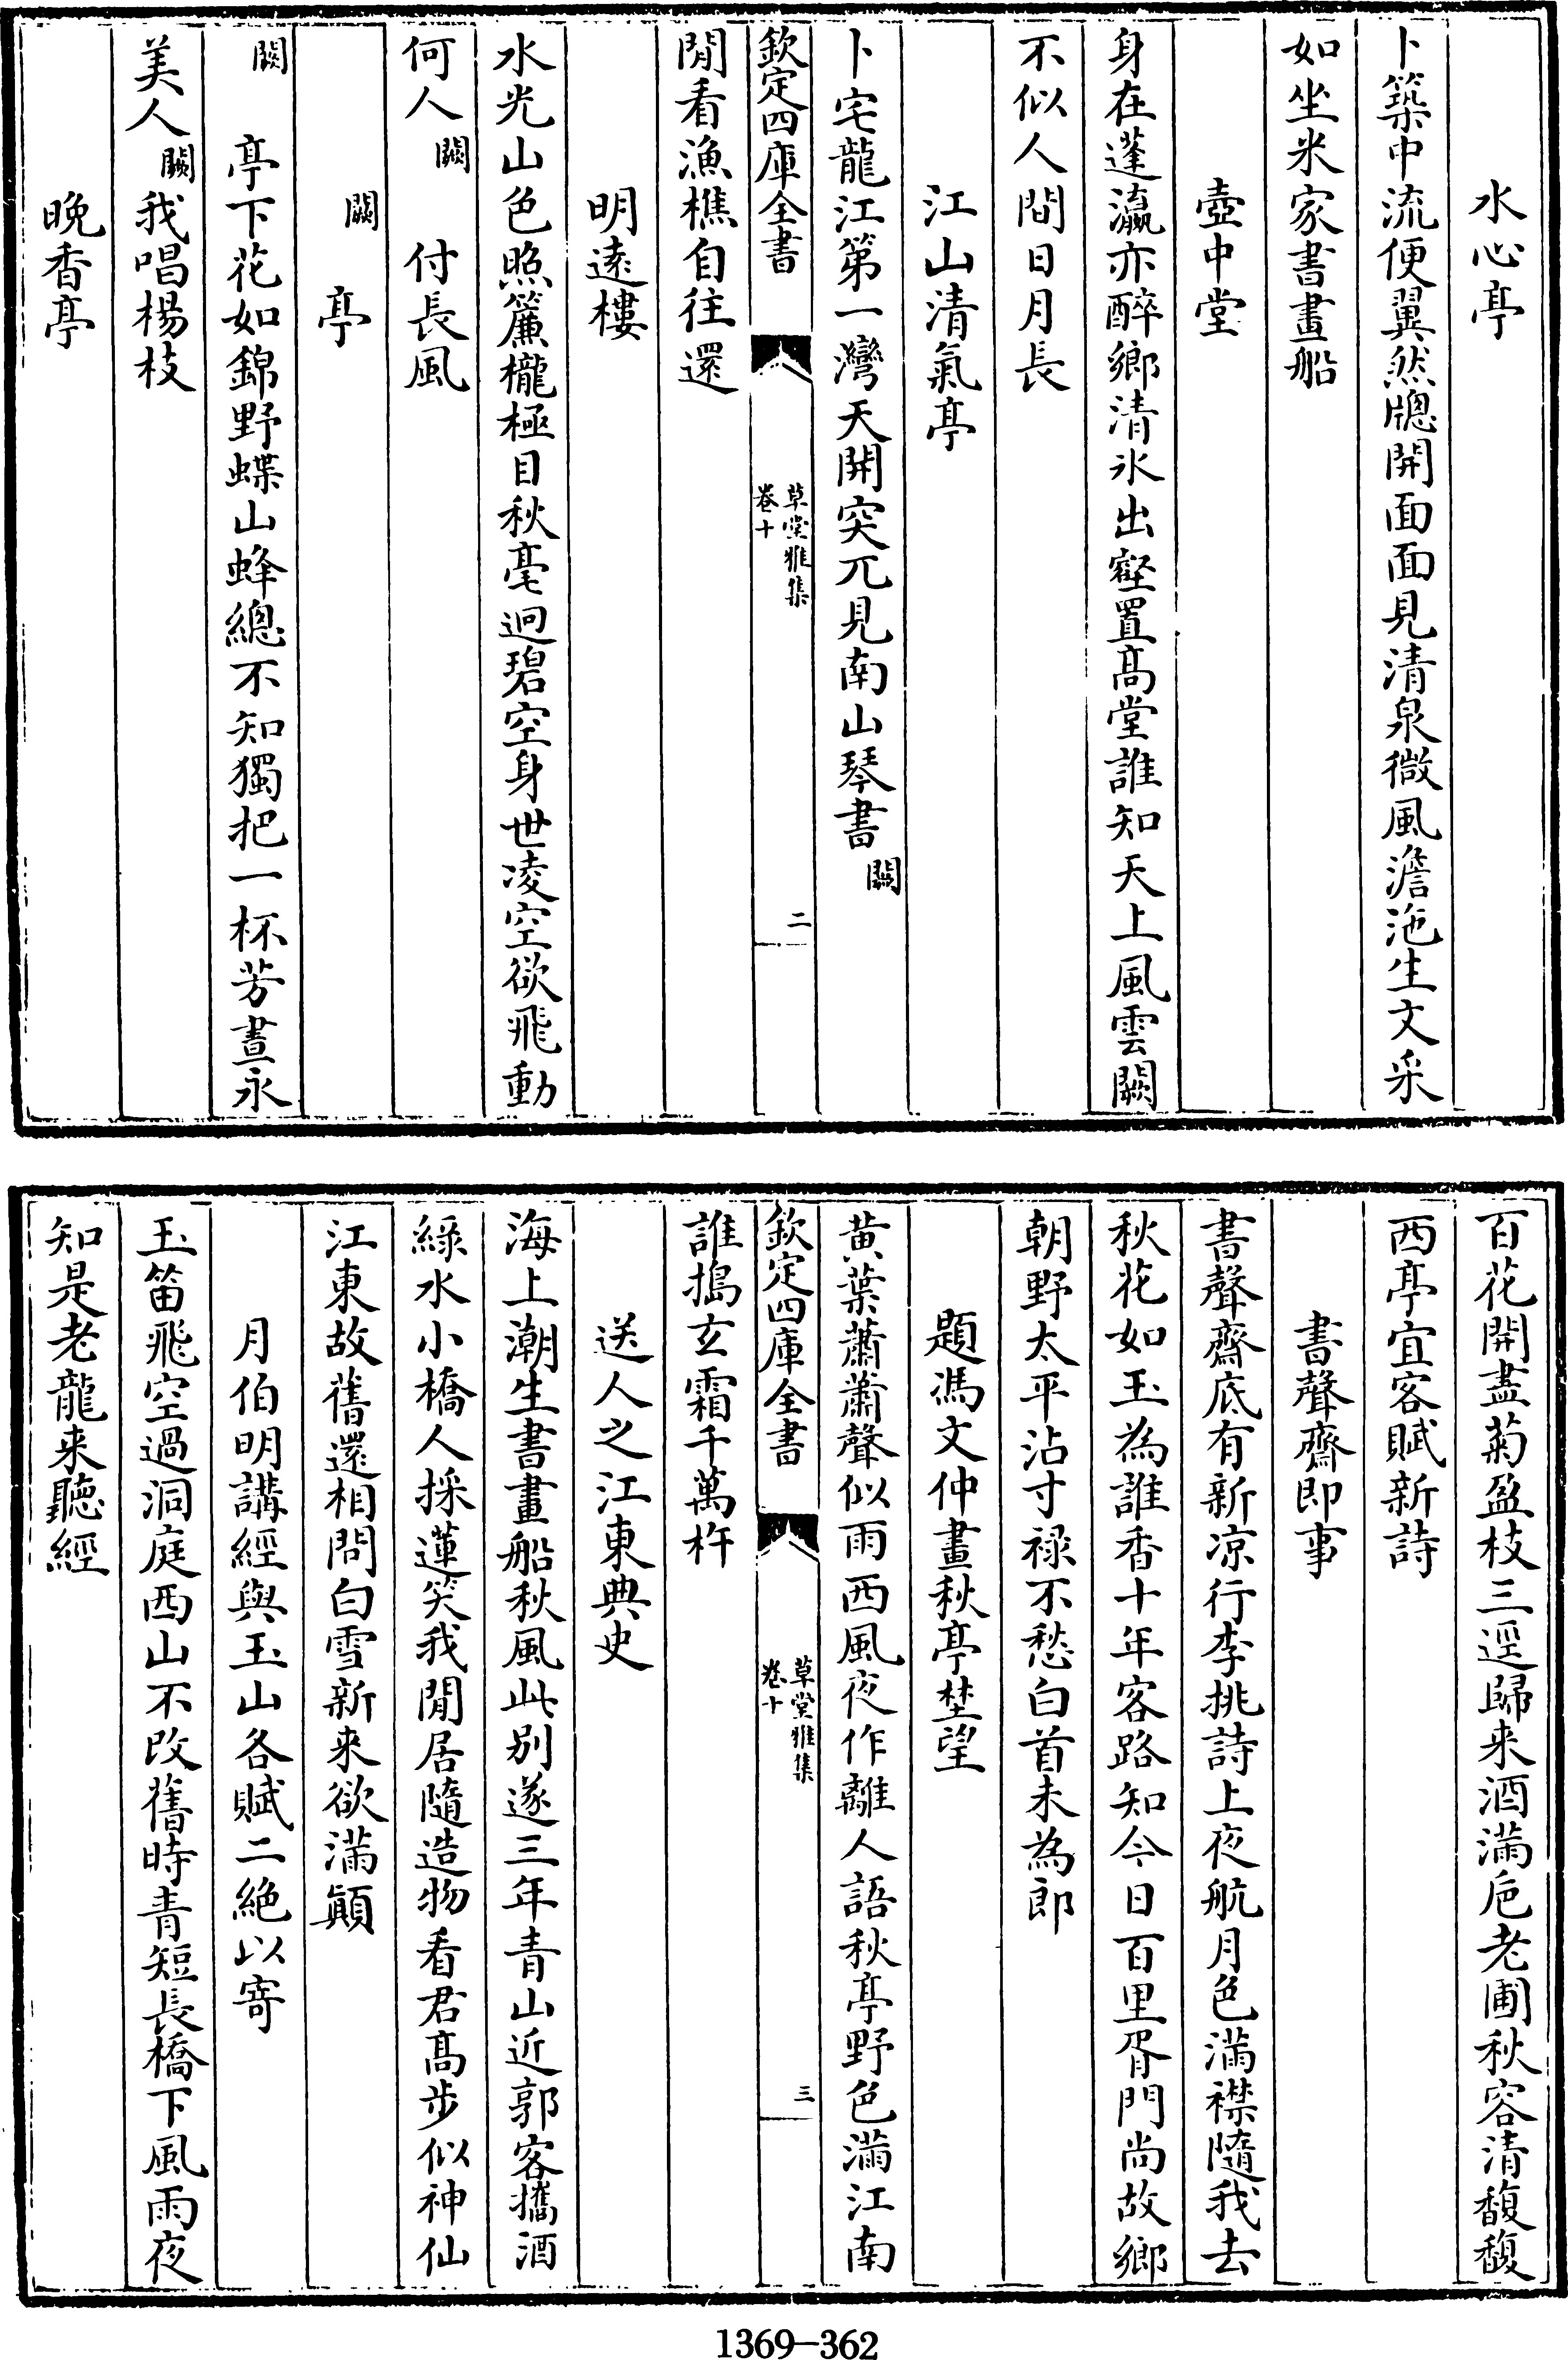 水心亭
卜築中流便翼然牕開面面見清泉微風澹沲生文采
如坐米家書畫船
壺中堂
身在蓬瀛亦醉鄉清氷出壑置髙堂誰知天上風雲闕
不似人間日月長
江山清氣亭
卜宅龍江第一灣天開突兀見南山琴書闕
欽定四庫全書
草堂雅集
卷十
二
閒看漁樵自往還
明遠樓
水光山色照簾櫳極目秋毫迥碧空身世凌空欲飛動
何人闕 付長風
闕 亭
闕 亭下花如錦野蝶山蜂總不知獨把一杯芳晝永
美人闕我唱楊枝
晚香亭
百花開盡菊盈枝三逕歸来酒滿巵老圃秋容清馥馥
西亭宜客賦新詩
書聲齋即事
書聲齋底有新凉行李挑詩上夜航月色滿襟隨我去
秋花如玉為誰香十年客路知今日百里胥門尚故鄉
朝野太平沾寸禄不愁白首未為郎
題馮文仲畫秋亭埜望
黄葉蕭蕭聲似雨西風夜作離人語秋亭野色滿江南
欽定四庫全書
草堂雅集
卷十
三
誰搗玄霜千萬杵
送人之江東典史
海上潮生書畫船秋風此别遂三年青山近郭客攜酒
綠水小橋人採蓮笑我閒居隨造物看君髙步似神仙
江東故舊還相問白雪新来欲滿顛
月伯明講經與玉山各賦二絶以寄
玉笛飛空過洞庭西山不改舊時青短長橋下風雨夜
知是老龍来聽經
1369-362